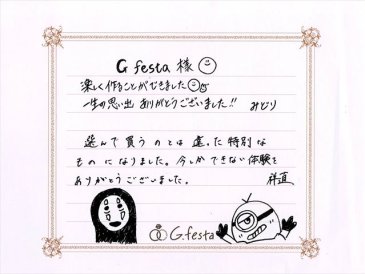 G festa 様
楽しく作ることができました
一生の思い出 ありがとうございました!!
みどり
選んで買うのとは違った特別な
ものになりました。今しかできない体験を
ありがとうございました。
祥直
G.festa